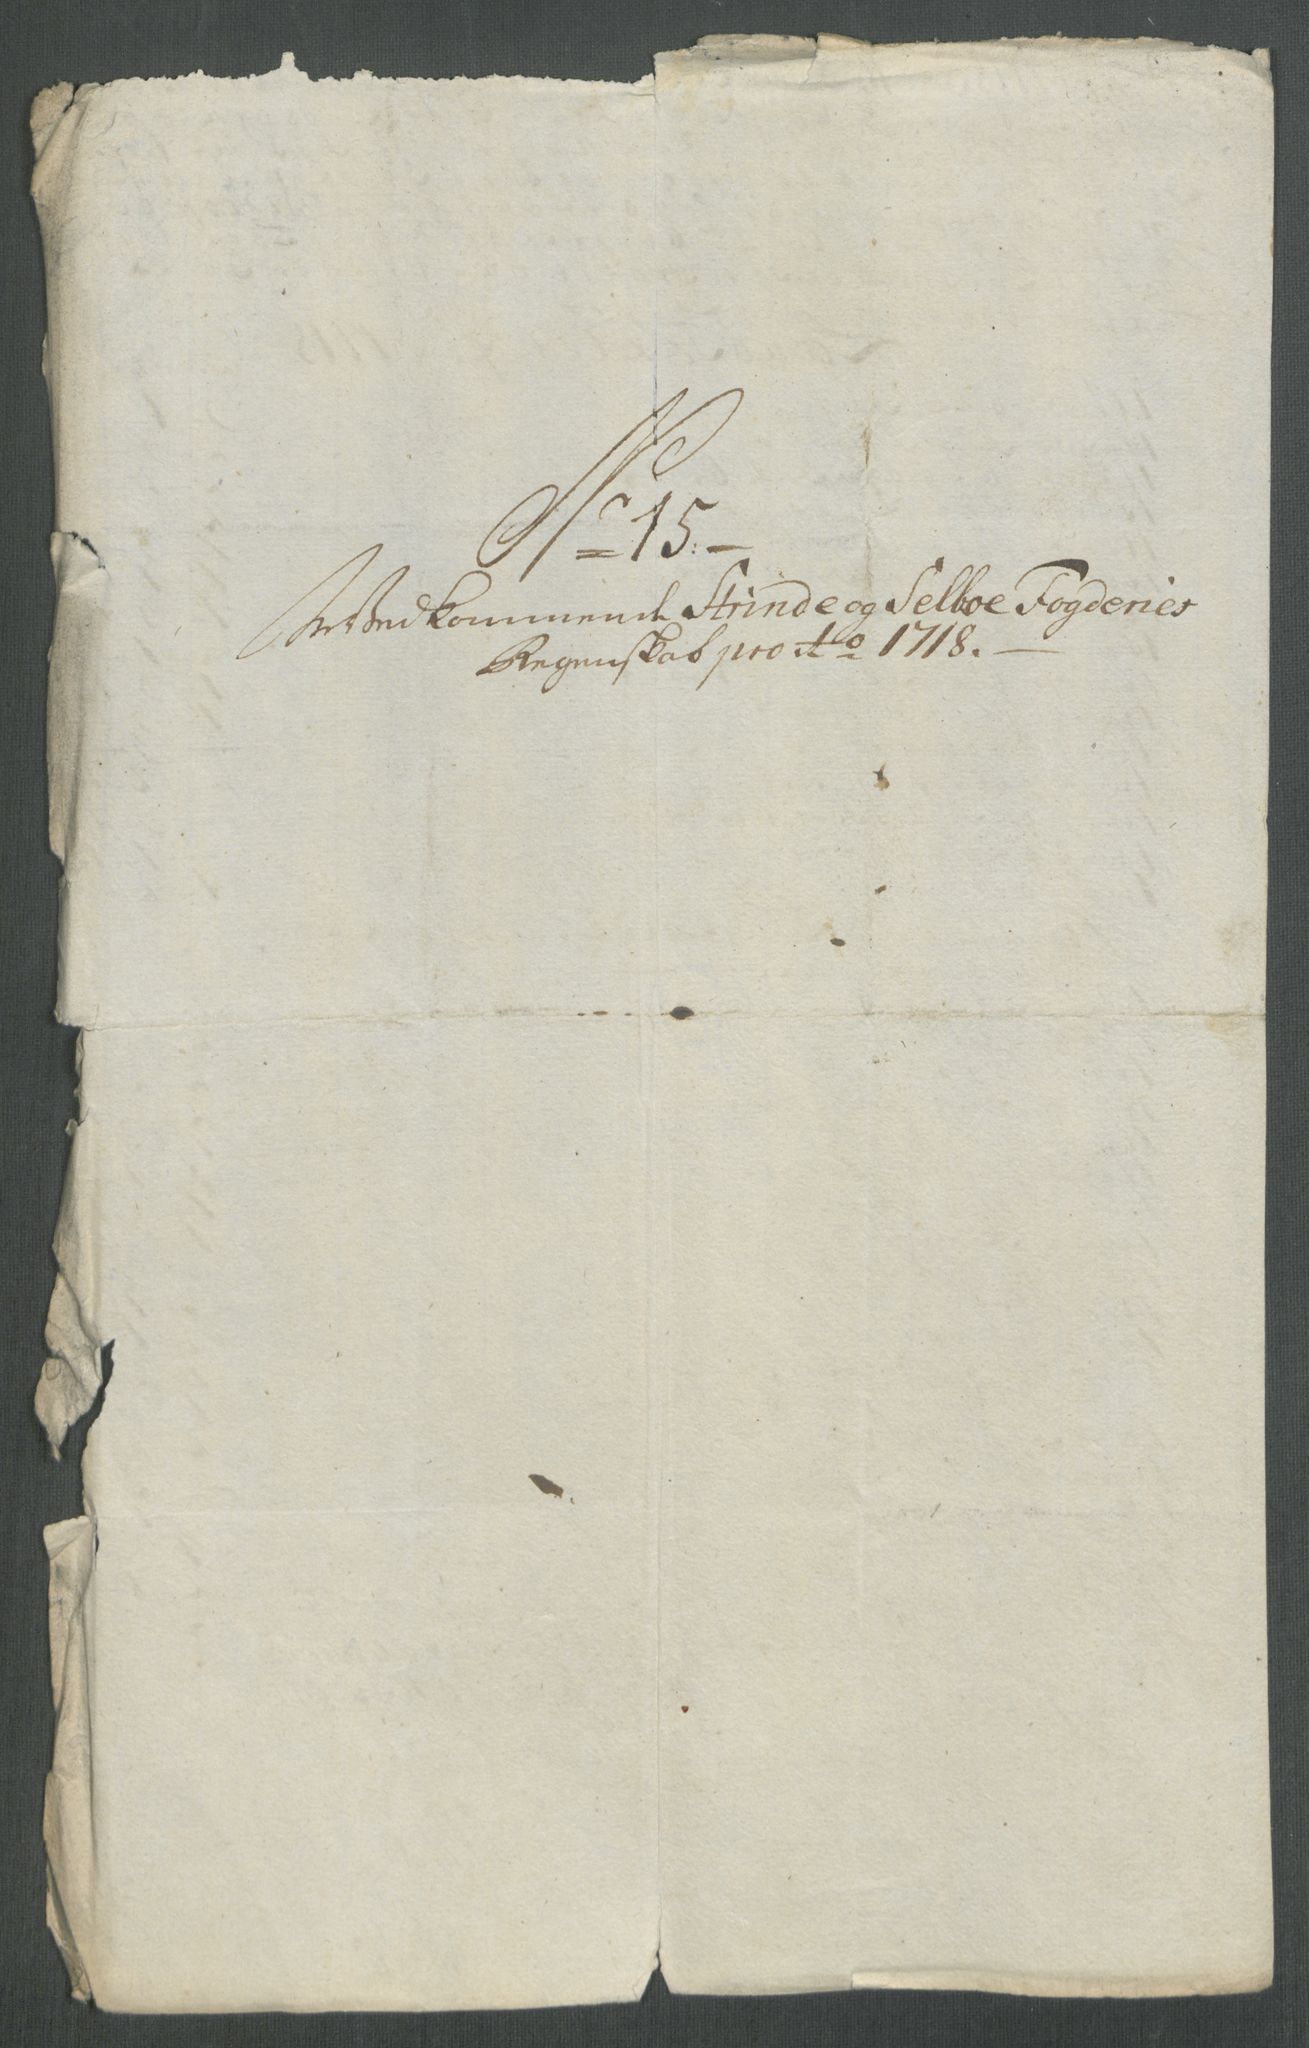 No 15.
Vedkommende Strinde og Selboe Fogderies
Regenskab pro Ao 1718.